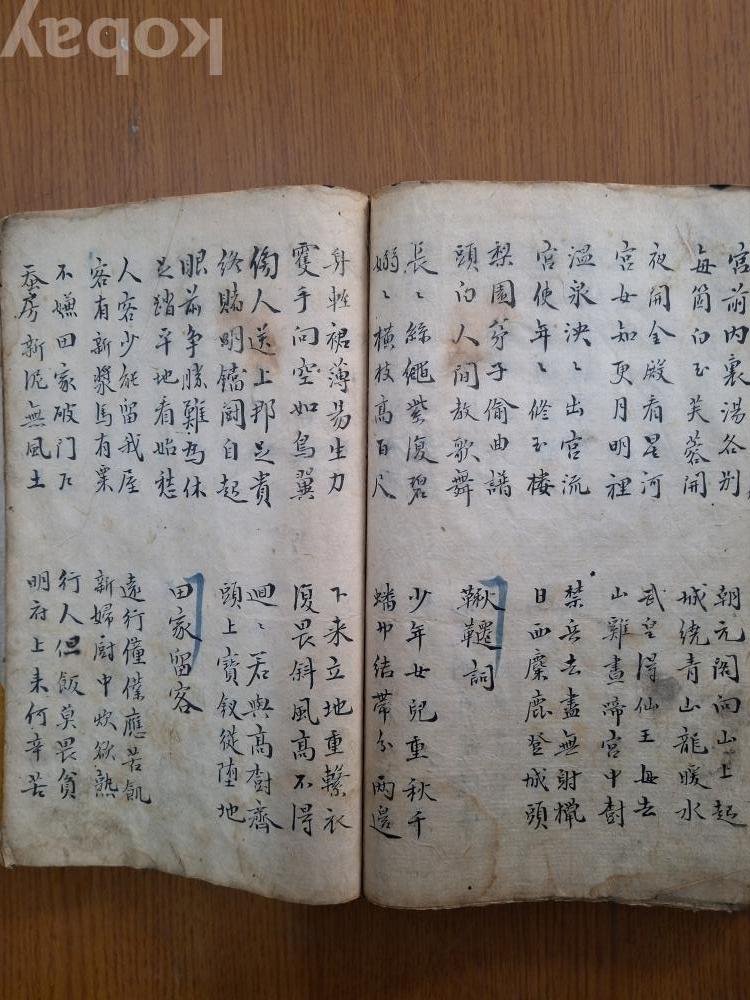 Kobay
宮前內裏湯各別
每箇白玉芙蓉開
朝元閣向山上起
城繞青山龍暖水
夜開金殿看星河
宮女知更月明裡
武皇得仙王母去
山雞晝啼宮中樹
溫泉決〻出宮流
宮使年〻修玉樓
禁兵去盡無射獵
日西麋鹿登城頭
梨園弟子偷曲譜
頭白人間教歌舞
鞦韆詞
長〻絲繩紫復碧
嫋〻橫枝高百尺
少年女兒重秋千
蟠巾結帶分兩邊
身輕裙薄易生力
雙手向空如鳥翼
下來立地重繫衣
復畏斜風高不得
傍人送上那足貴
終賭明璫鬪自起
迴〻若與高樹齊
頭上寶釵從墮地
眼前爭勝難為休
足踏平地看始愁
田家留客
人客少能留我屋
客有新漿馬有粟
遠行僮僕應苦飢
新婦廚中炊欲熟
不嫌田家破門戶
蚕房新泥無風土
行人但飯莫畏貧
明府上來何辛苦